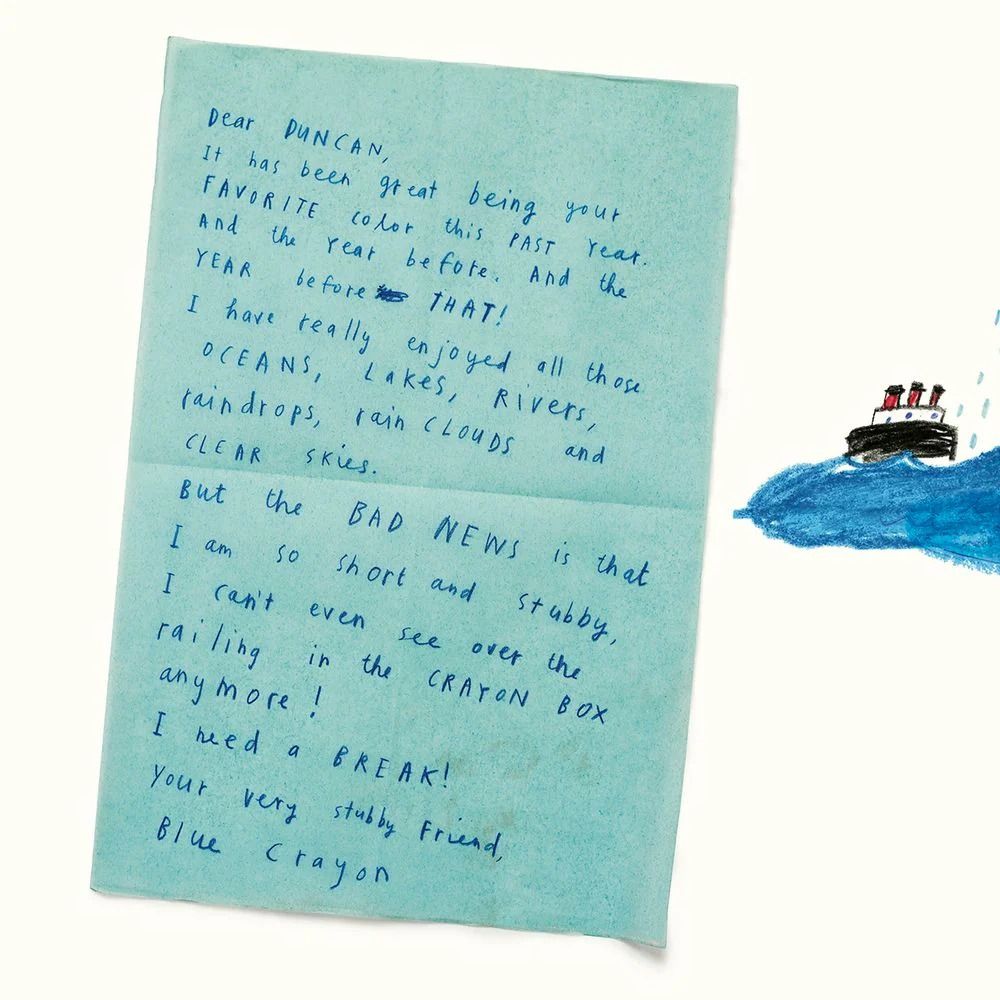 Dear DUNCAN,
It has been great being your
FAVORITE color this PAST Year.
And the Year before. And the
YEAR before THAT!
I have really enjoyed all those
OCEANS, Lakes, Rivers,
raindrops, rain CLOUDS and
CLEAR skies.
But the BAD NEWS is that
I am so short and stubby,
I can't even see over the
railing in the CRAYON BOX
anymore!
I need a BREAK!
Your very stubby Friend,
Blue Crayon